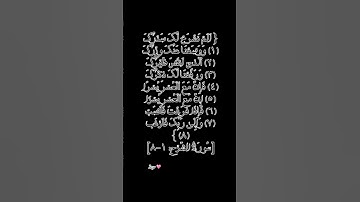 ﴿ أَلَمْ نَشْرَحْ لَكَ صَدْرَكَ
(١) وَوَضَعْنَا عَنكَ وِزْرَكَ
(٢) الَّذِي أَنقَضَ ظَهْرَكَ
(٣) وَرَفَعْنَا لَكَ ذِكْرَكَ
(٤) فَإِنَّ مَعَ الْعُسْرِ يُسْرًا
(٥) إِنَّ مَعَ الْعُسْرِ يُسْرًا
(٦) فَإِذَا فَرَغْتَ فَانصَبْ
(٧) وَإِلَىٰ رَبِّكَ فَارْغَب
(٨) ﴾
[سُورَةُ الشَّرْحِ: ١-٨]